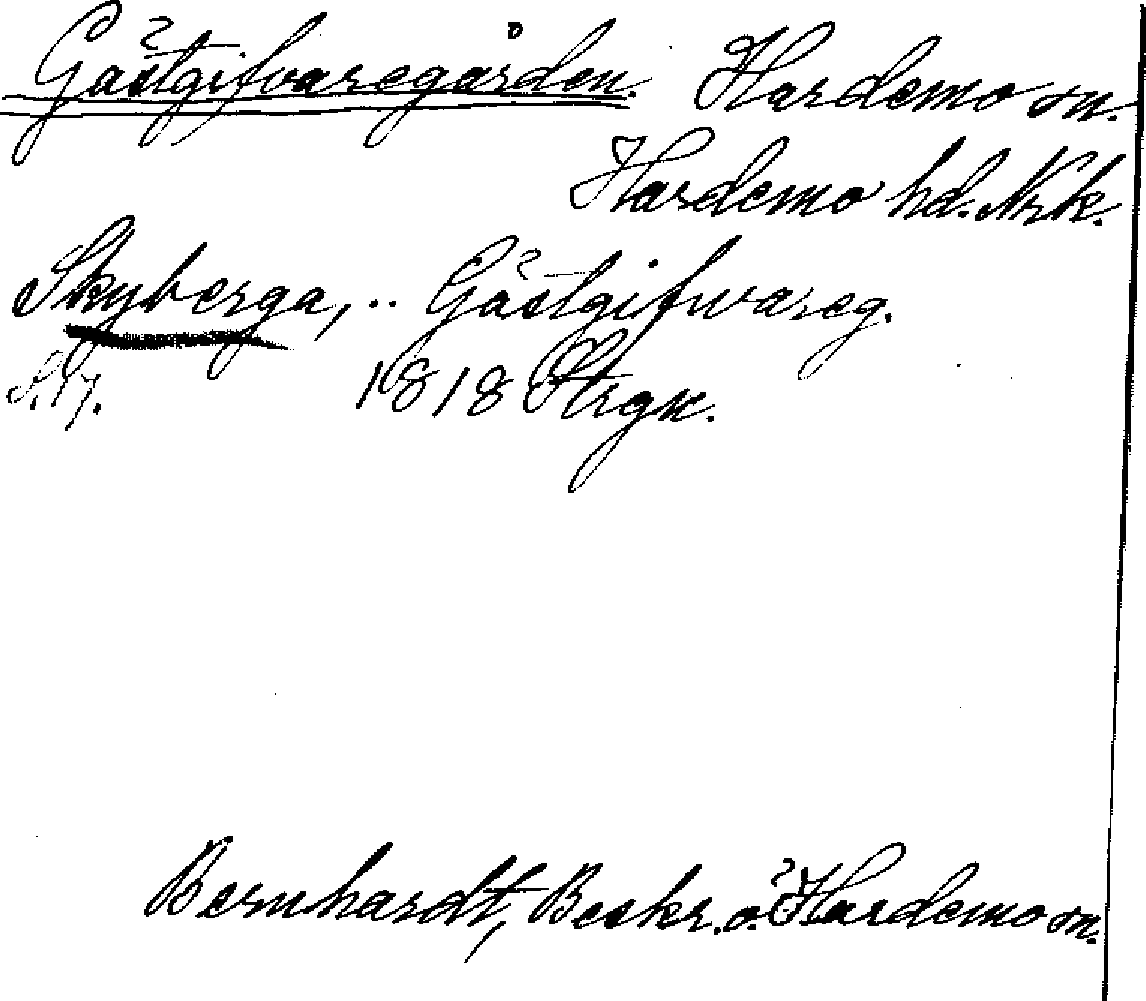 Gästgifvaregården. Hardemo sn.
Hardemo hd. Nrk.
Skyberga, .. Gästgifvareg.
S. 17. 1818 Strgk.
Bernhardt, Beskr. ö. Hardemo sn.